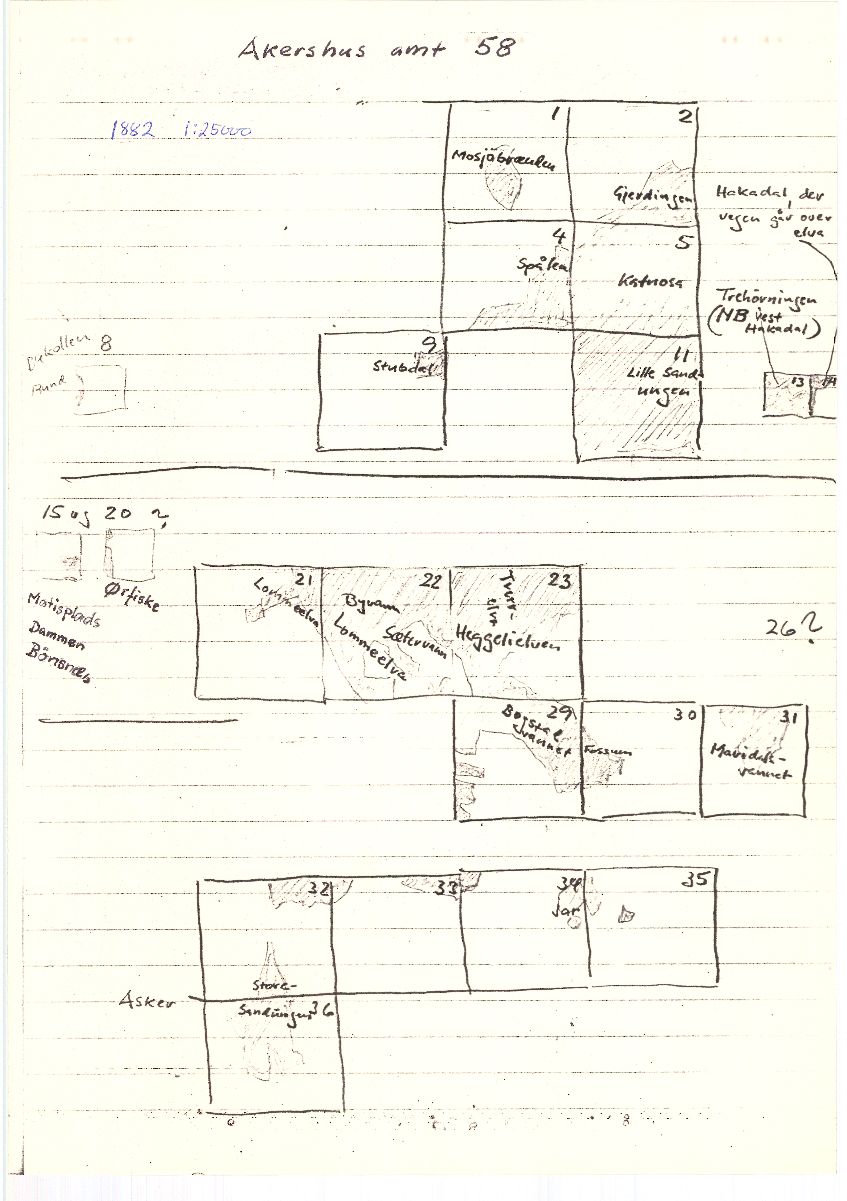 Akershus amt 58
1882 1:25000
1
2
Mosjöbrænden
Gjerdingen
Hakadal, der
vegen går over
elva
4
5
Spålen
Katnosa
Trehörningen
(NB vest
Hakadal)
8
9
Stubdal
11
Lille Sand
ungen
13
14
15 og 20 ?
Ørfiske
Motisplads
Dammen
Bönsnæs
21
Lommeelva
22
Byvann
Sætervann
Lommeelva
23
Tverr-
elva
Heggelielven
26?
29
Bogstad
vannet
30
Fossum
31
Maridals-
vannet
32
33
34
Jar
35
Store-
Asker
Sandungen
36